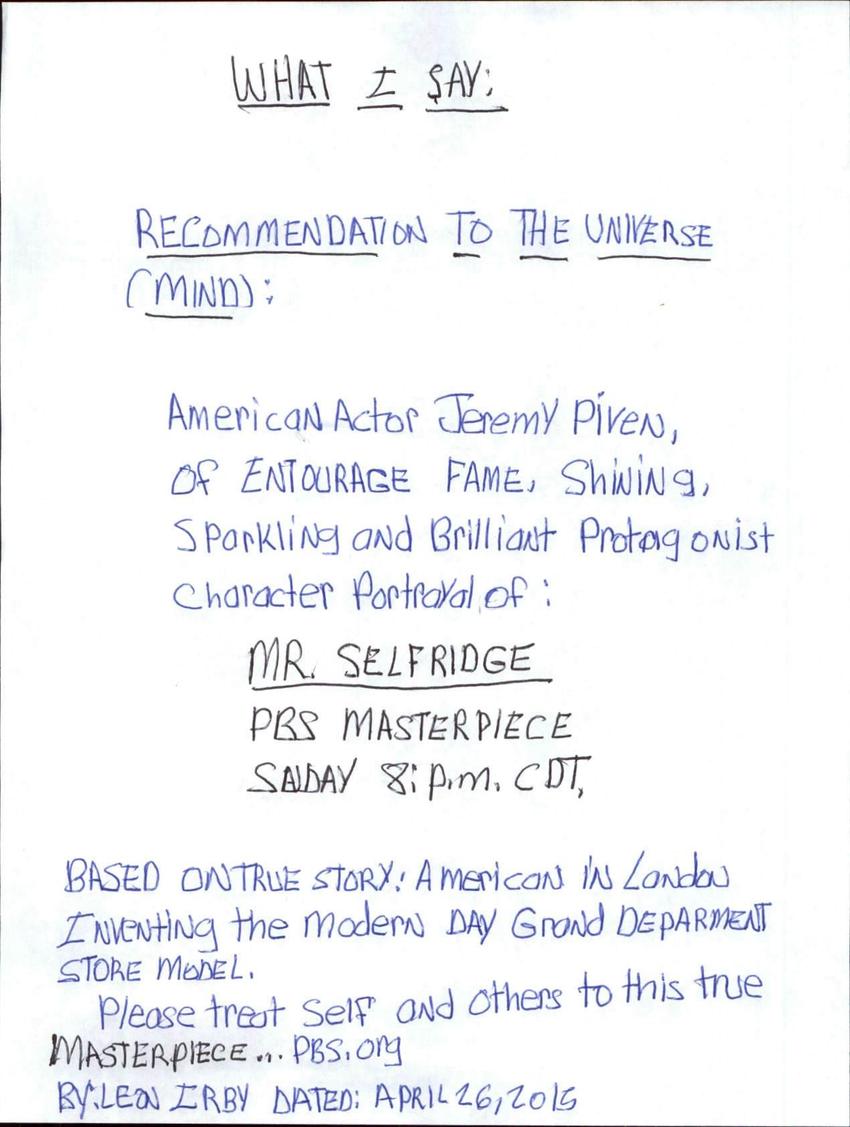 WHAT I SAY:
RECOMMENDATION TO THE UNIVERSE
(MIND):
American Actor Jeremy Piven,
OF ENTOURAGE FAME, Shining,
Sparkling and Brilliant Protagonist
Character Portrayal of:
MR. SELFRIDGE
PBS MASTERPIECE
8: p.m. CDT,
BASED ON TRUE STORY: American in London
Inventing the modern DAY Grand DEPARMENT
STORE MODEL.
Please treat Self and others to this true
MASTERPIECE... PBS.org
BY: LEON IRBY DATED: APRIL 26, 2015